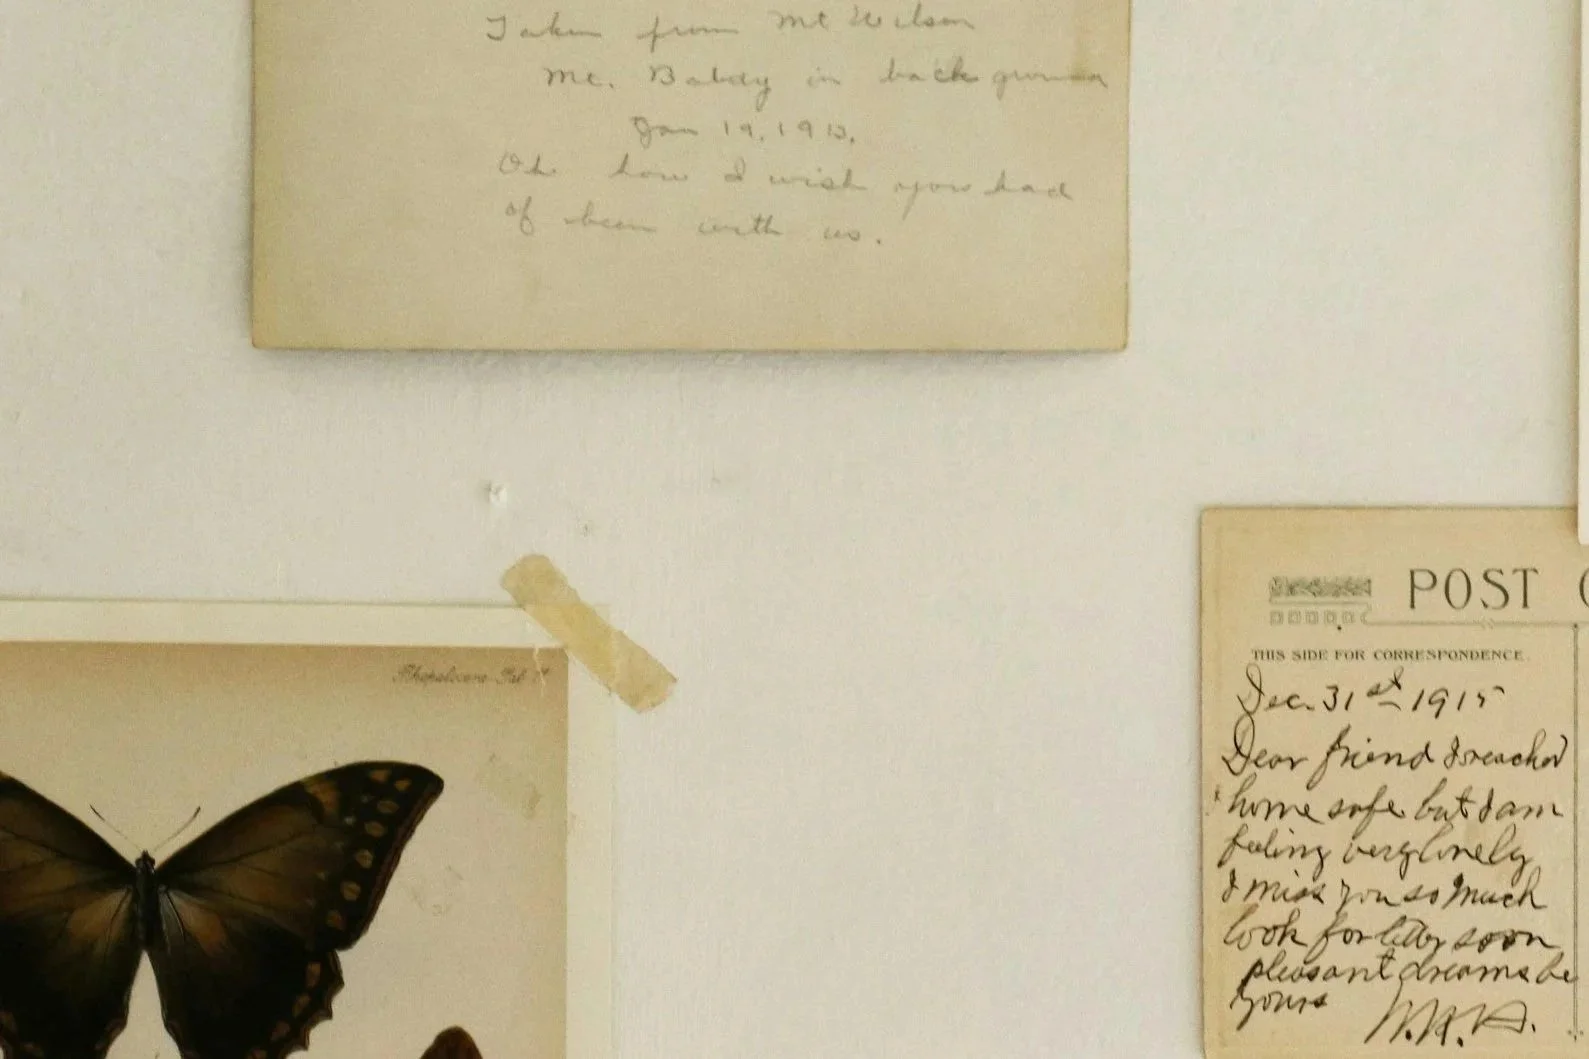 Taken from Mt Wilson
Mt. Baldy in back ground
Jan 19, 1913.
Oh how I wish you had
of been with us.
Rhopalocera
POST
THIS SIDE FOR CORRESPONDENCE.
Dec. 31st 1915
Dear friend I reached
home safe but I am
feeling very lonely
I miss you so much
look for letter soon
pleasant dreams be
yours